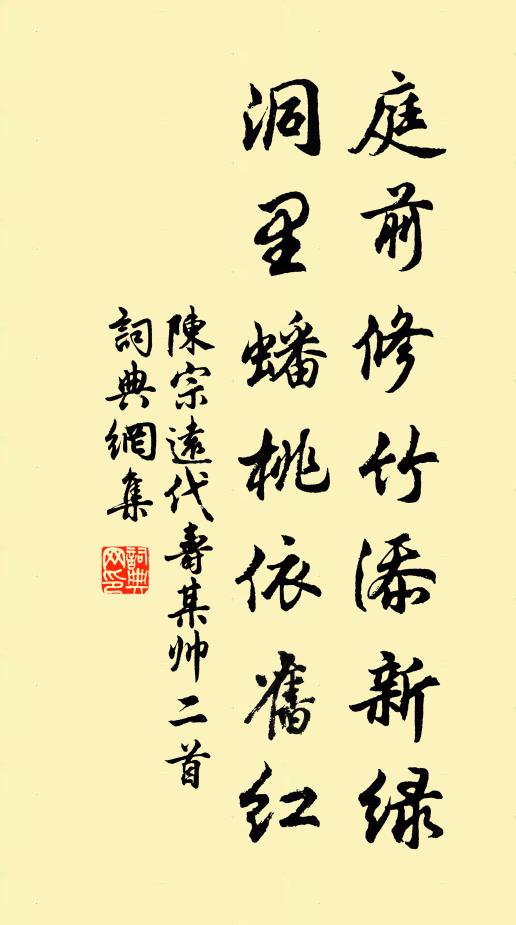 庭前修竹添新绿
洞里蟠桃依舊红
陳宗遠代壽某帅二首
詞典網集
詞典网印